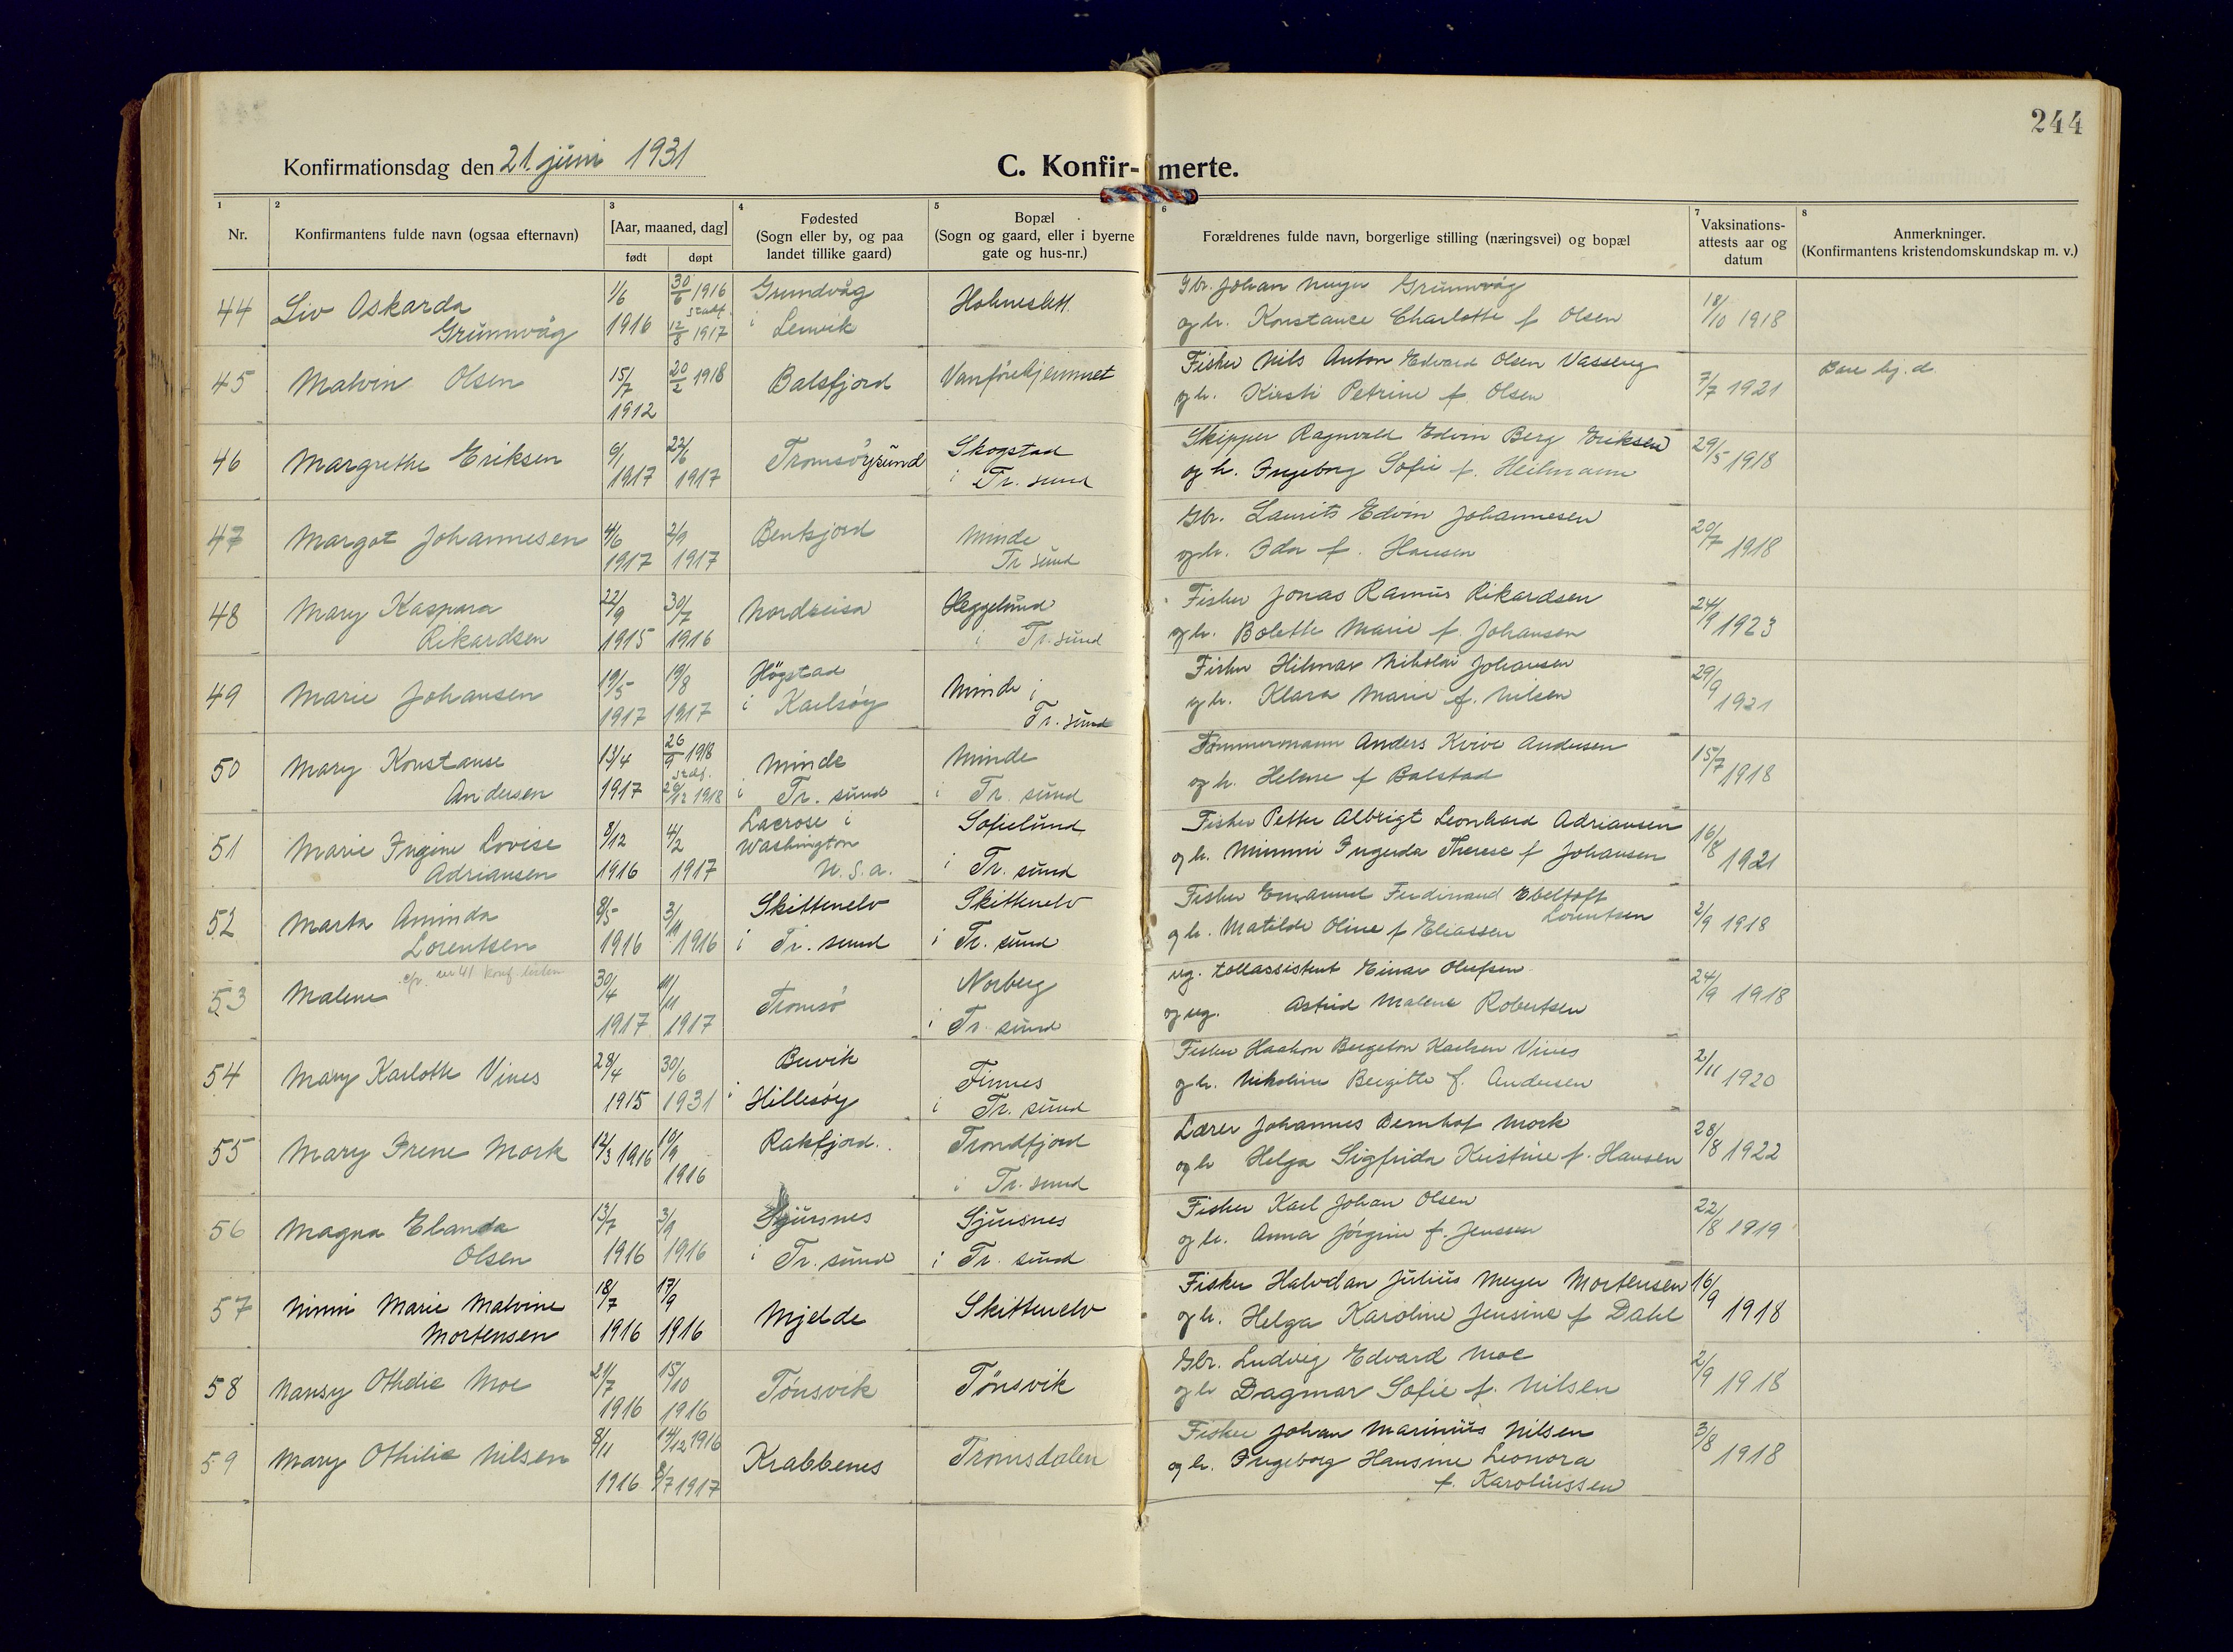 244
Konfirmationsdag den 21. juni 1931
C. Konfir-merte.
1 2 3 4 5 6 7 8
Nr.
Konfirmantens fulde navn (ogsaa efternavn)
[Aar, maaned, dag]
født døpt
Fødested
(Sogn eller by, og paa
landet tillike gaard)
Bopæl
(Sogn og gaard, eller i byerne
gate og hus-nr.)
Forældrenes fulde navn, borgerlige stilling (næringsvei) og bopæl
Vaksinations-
attests aar og
datum
Anmerkninger.
(Konfirmantens kristendomskundskap m. v.)
44 Liv Oskarda 1/6 30/6 1916 Grundvåg Holmeslett Gbr. Johan Meyer Grunnvåg 18/10 1918
Grunnvåg 1916 stadf. 12/8 1917 i Lenvik og h. Konstance Charlotte f Olsen
45 Malvin Olsen 15/7 20/2 1918 Balsfjord Vanförehjemmet Fisker Nils Anton Edvard Olsen 7/7 1921
1912 og h. Kirsti Petrine f. Olsen
46 Margrethe Eriksen 9/1 22/6 Tromsöysund Skogstad Skipper Ragnvald Edvin Berg Eriksen 29/5 1918
1917 1917 i Tr. sund og h. Ingeborg Sofie f. Heilmann
47 Margot Johannesen 4/6 2/9 Benkjord Minde Gbr. Laurits Edvin Johannesen 20/7 1918
1917 1917 Tr sund og h. Ida f. Hansen
48 Mary Kaspara 22/9 30/7 Nordreisa Heggelund Fisker Jonas Ramus Rikardsen 24/9 1923
Rikardsen 1915 1916 i Tr. sund og h. Bolette Marie f. Johansen
49 Marie Johansen 19/5 19/8 Högstad Minde i Fisker Hilmar Nikolai Johansen 29/9
1917 1917 i Karlsöy Tr. sund og h. Klara Marie f. Nilsen 1921
50 Mary Konstanse 13/4 26/9 1918 Minde Minde Tømmermann Anders Kvive Andersen 15/7 1918
Andersen 1917 stadf. 26/12 1918 i Tr. sund i Tr. sund og h. Helene f Balstad
51 Marie Ingine Lovise 8/12 4/2 Lacrose i Sofielund Fisker Petter Albrigt Leonhard Adriansen 16/8
Adriansen 1916 1917 Washington i Tr. sund og h. Mimmi Ingerda Therese f Johansen 1921
U. S. a.
52 Marta Aminda 8/5 3/11 Skittenelv Skittenelv Fisker Emanuel Ferdinand Ebeltoft 2/9 1918
Lorentsen 1916 1916 i Tr. sund i Tr. sund Lorentsen
og h. Matilde Oline f Eliassen
53 Malene cfr. nr 41 konf. listen 30/4 11/11 Tromsö Norberg ug. tollassistent Einar Olufsen 24/9 1918
1917 1917 i Tr. sund og ug. Astrid Malene Robertsen
54 Mary Karlotte Vines 28/4 30/6 Buvik Finnes Fisker Haakon Bergeton Karlsen Vines 2/11 1920
1915 1931 i Hillesöy i Tr. sund og h. Nikoline Bergitte f. Andersen
55 Mary Irene Mork 12/3 1916 10/9 Rakfjord. Trondfjord Lærer Johannes Bernhof Mork 28/8 1922
1916 i Tr. sund og h Helga Sigfrida Kristine f. Hansen
56 Magna Elanda 13/7 3/9 Sjursnes Sjursnes Fisker Karl Johan Olsen 22/8 1919
Olsen 1916 1916 i Tr. sund i Tr. sund og h. Anna Jörgine f. Jensen
57 Ninni Marie Malvine 18/7 17/9 Mjelde Skittenelv Fisker Halvdan Julius Meyer Mortensen 16/9
Mortensen 1916 1916 og h. Helga Karoline Jensine f Dahl 1918
58 Nansy Othelie Moe 21/7 15/10 Tönsvik Tönsvik Gbr. Ludvig Edvard Moe 2/9 1918
1916 1916 og h Dagmar Sofie f. Nilsen
59 Mary Othilie Nilsen 8/11 14/12 1916 Krabbenes Tromsdalen Fisker Johan Marinius Nilsen 3/8
1916 8/7 1917 og h. Ingeborg Hansine Leonora 1918
f. Karoliussen